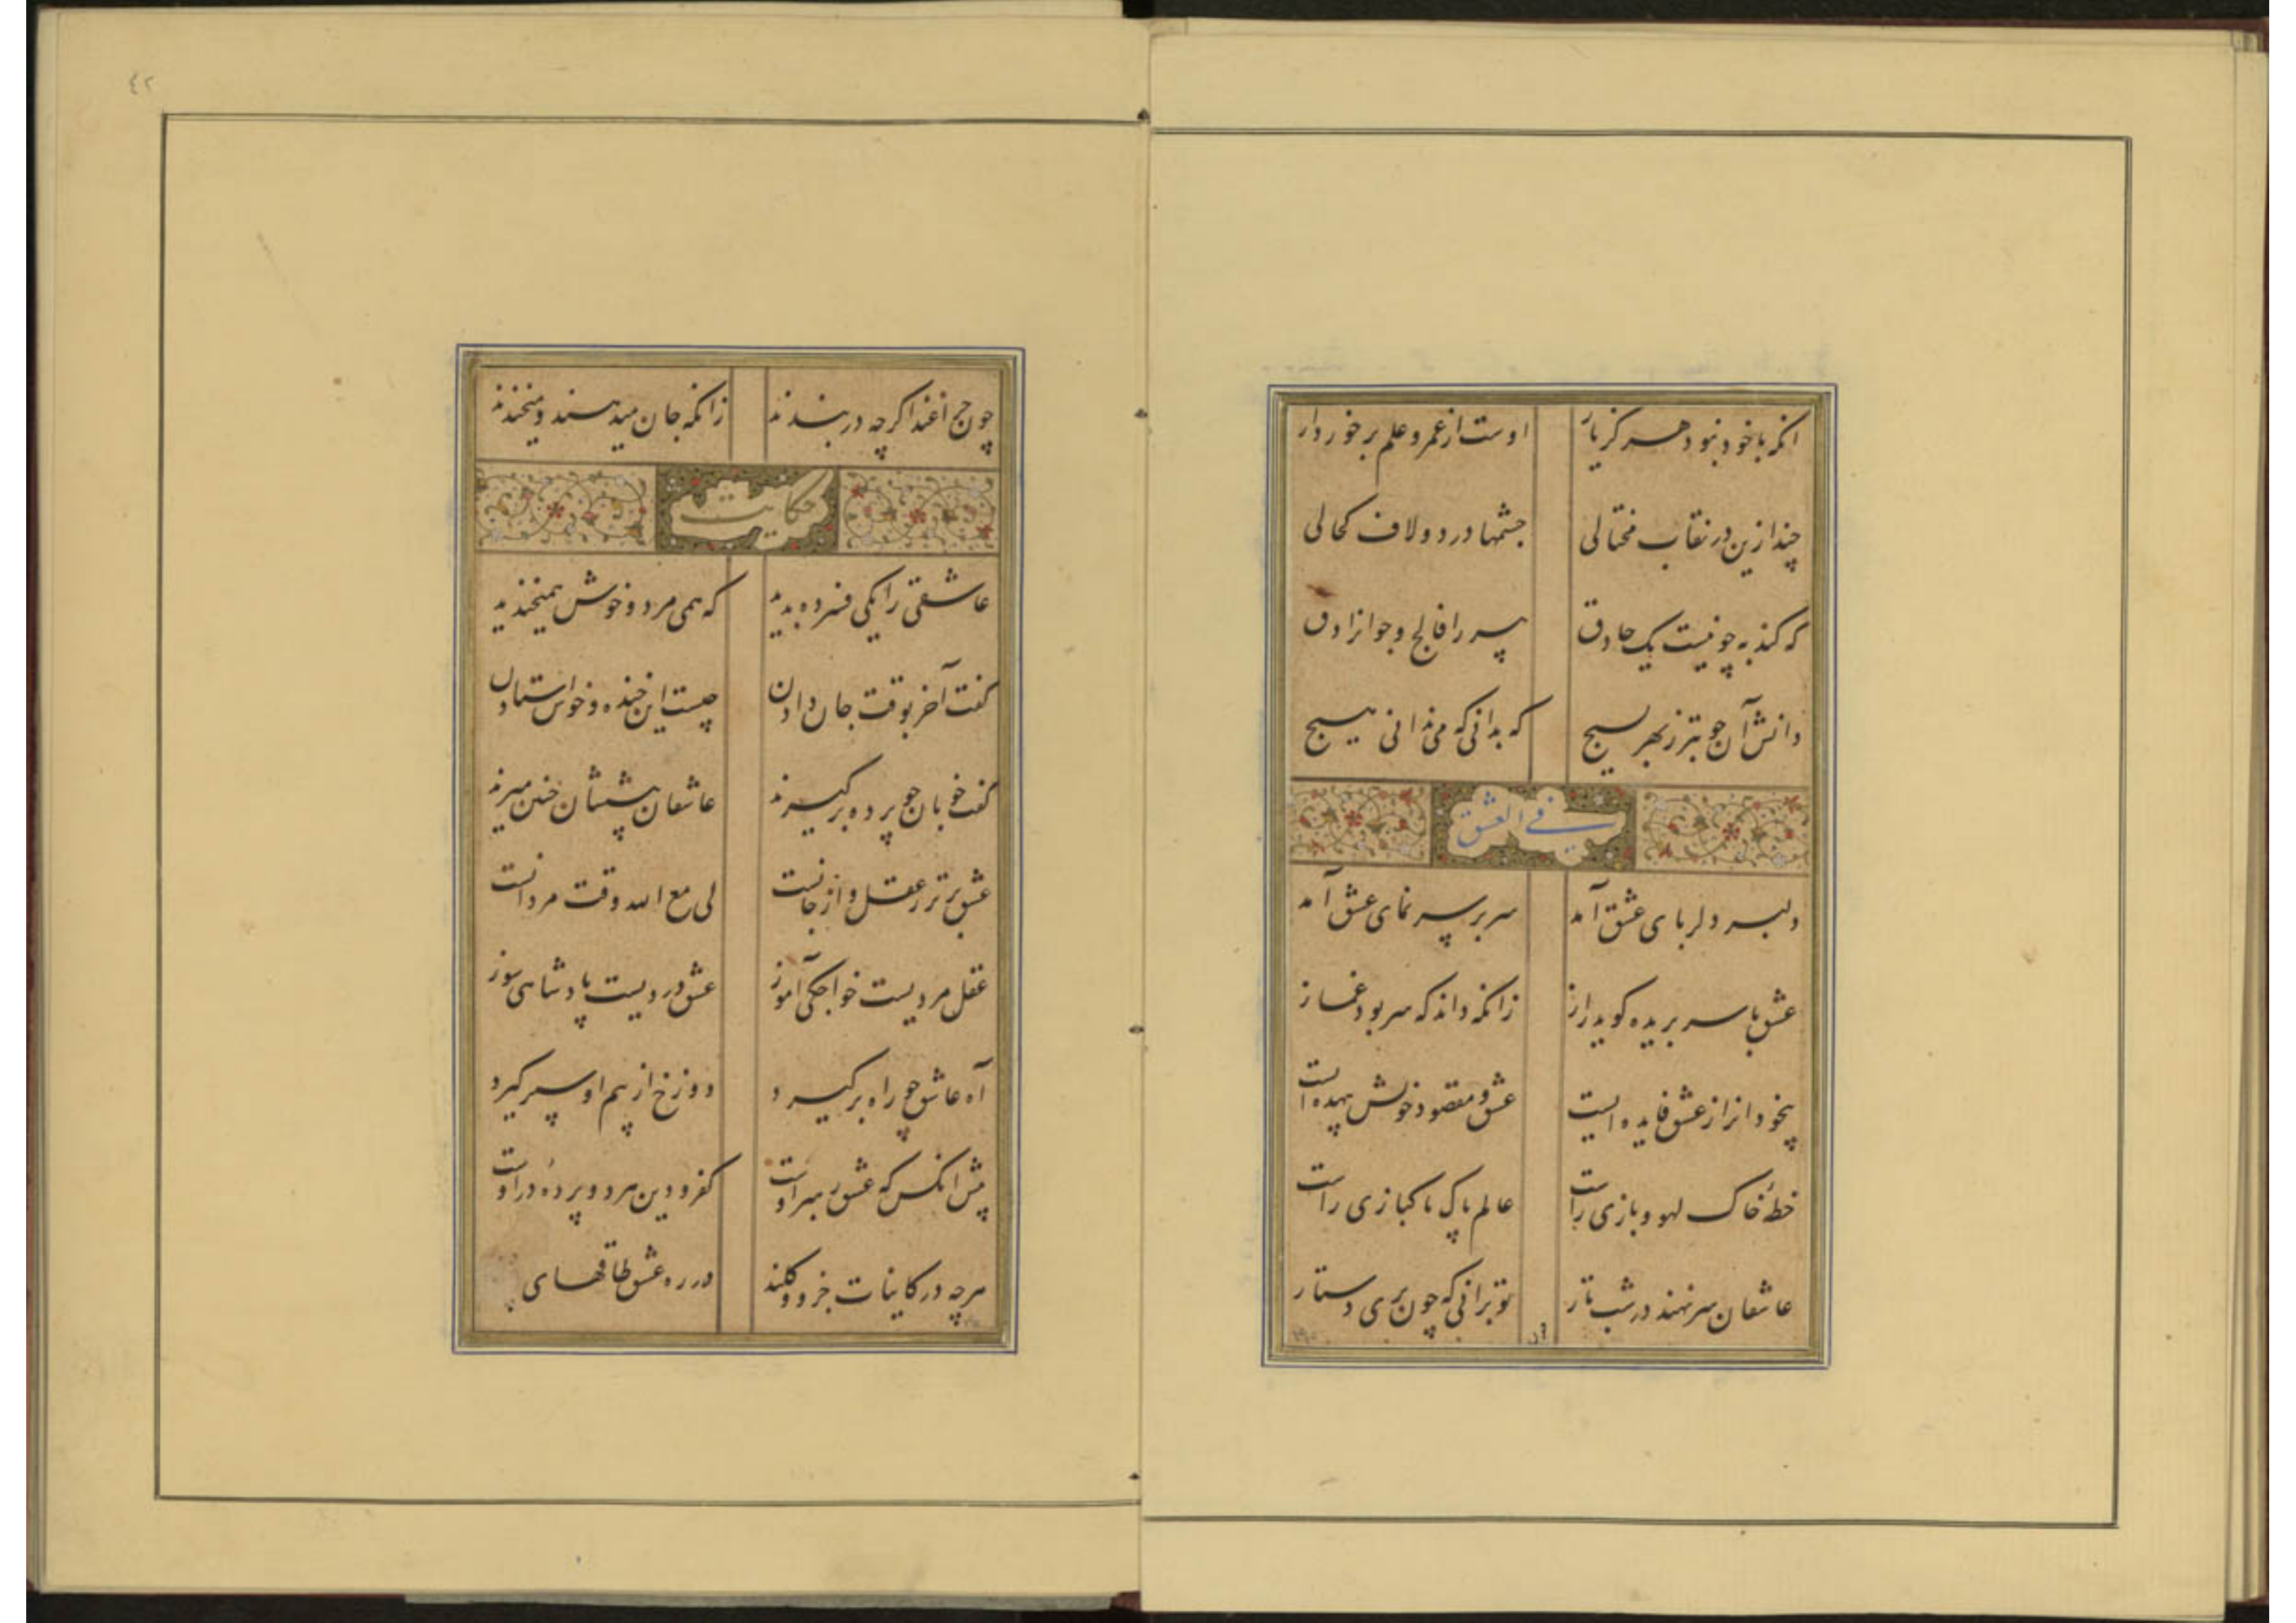 انکه با خود نبود هرگز یار اوست از عمر و علم برخوردار
چند ازین در نقاب محتالی چشمها درد و لاف کحالی
که کند به چو نیست یک حاذق پیر را فالج و جوانرا دق
دانش آن جوبتر ز بهر بسیج که بدانی که می‌ندانی هیچ
فی العشق
دلبر دلربای عشق آمد سربر سرنمای عشق آمد
عشق با سر بریده کوید راز زانکه داند که سر بود غماز
بیخودانرا از عشق فایده ایست عشق و مقصود خویش بیهده است
خطهٔ خاک لهو و بازی راست عالم پاک پاکبازی راست
عاشقان سر نهند در شب تار تو برانی که چون بری دستار
٤٢
چو چراغند اکرچه در بندند زانکه جان میدهند و میخندند
حکایت
عاشقی را یکی فسرده بدید که همی مرد و خوش همیخندید
کفت آخر بوقت جان دادن چیست این خنده و خوش استادن
کفت خوبان چو پرده برکیرند عاشقان پیششان چنین میرند
عشق برتر ز عقل و از جانست لی مع الله وقت مردانست
عقل مردیست خواجکی آموز عشق دردیست پادشاهی سوز
آه عاشق چو راه برکیرد دوزخ از بیم او سپر کیرد
پیش انکس که عشق رهبر اوست کفر و دین هر دو پردهٔ در اوست
هرچه در کاینات جزو و کلند در ره عشق طاقهای